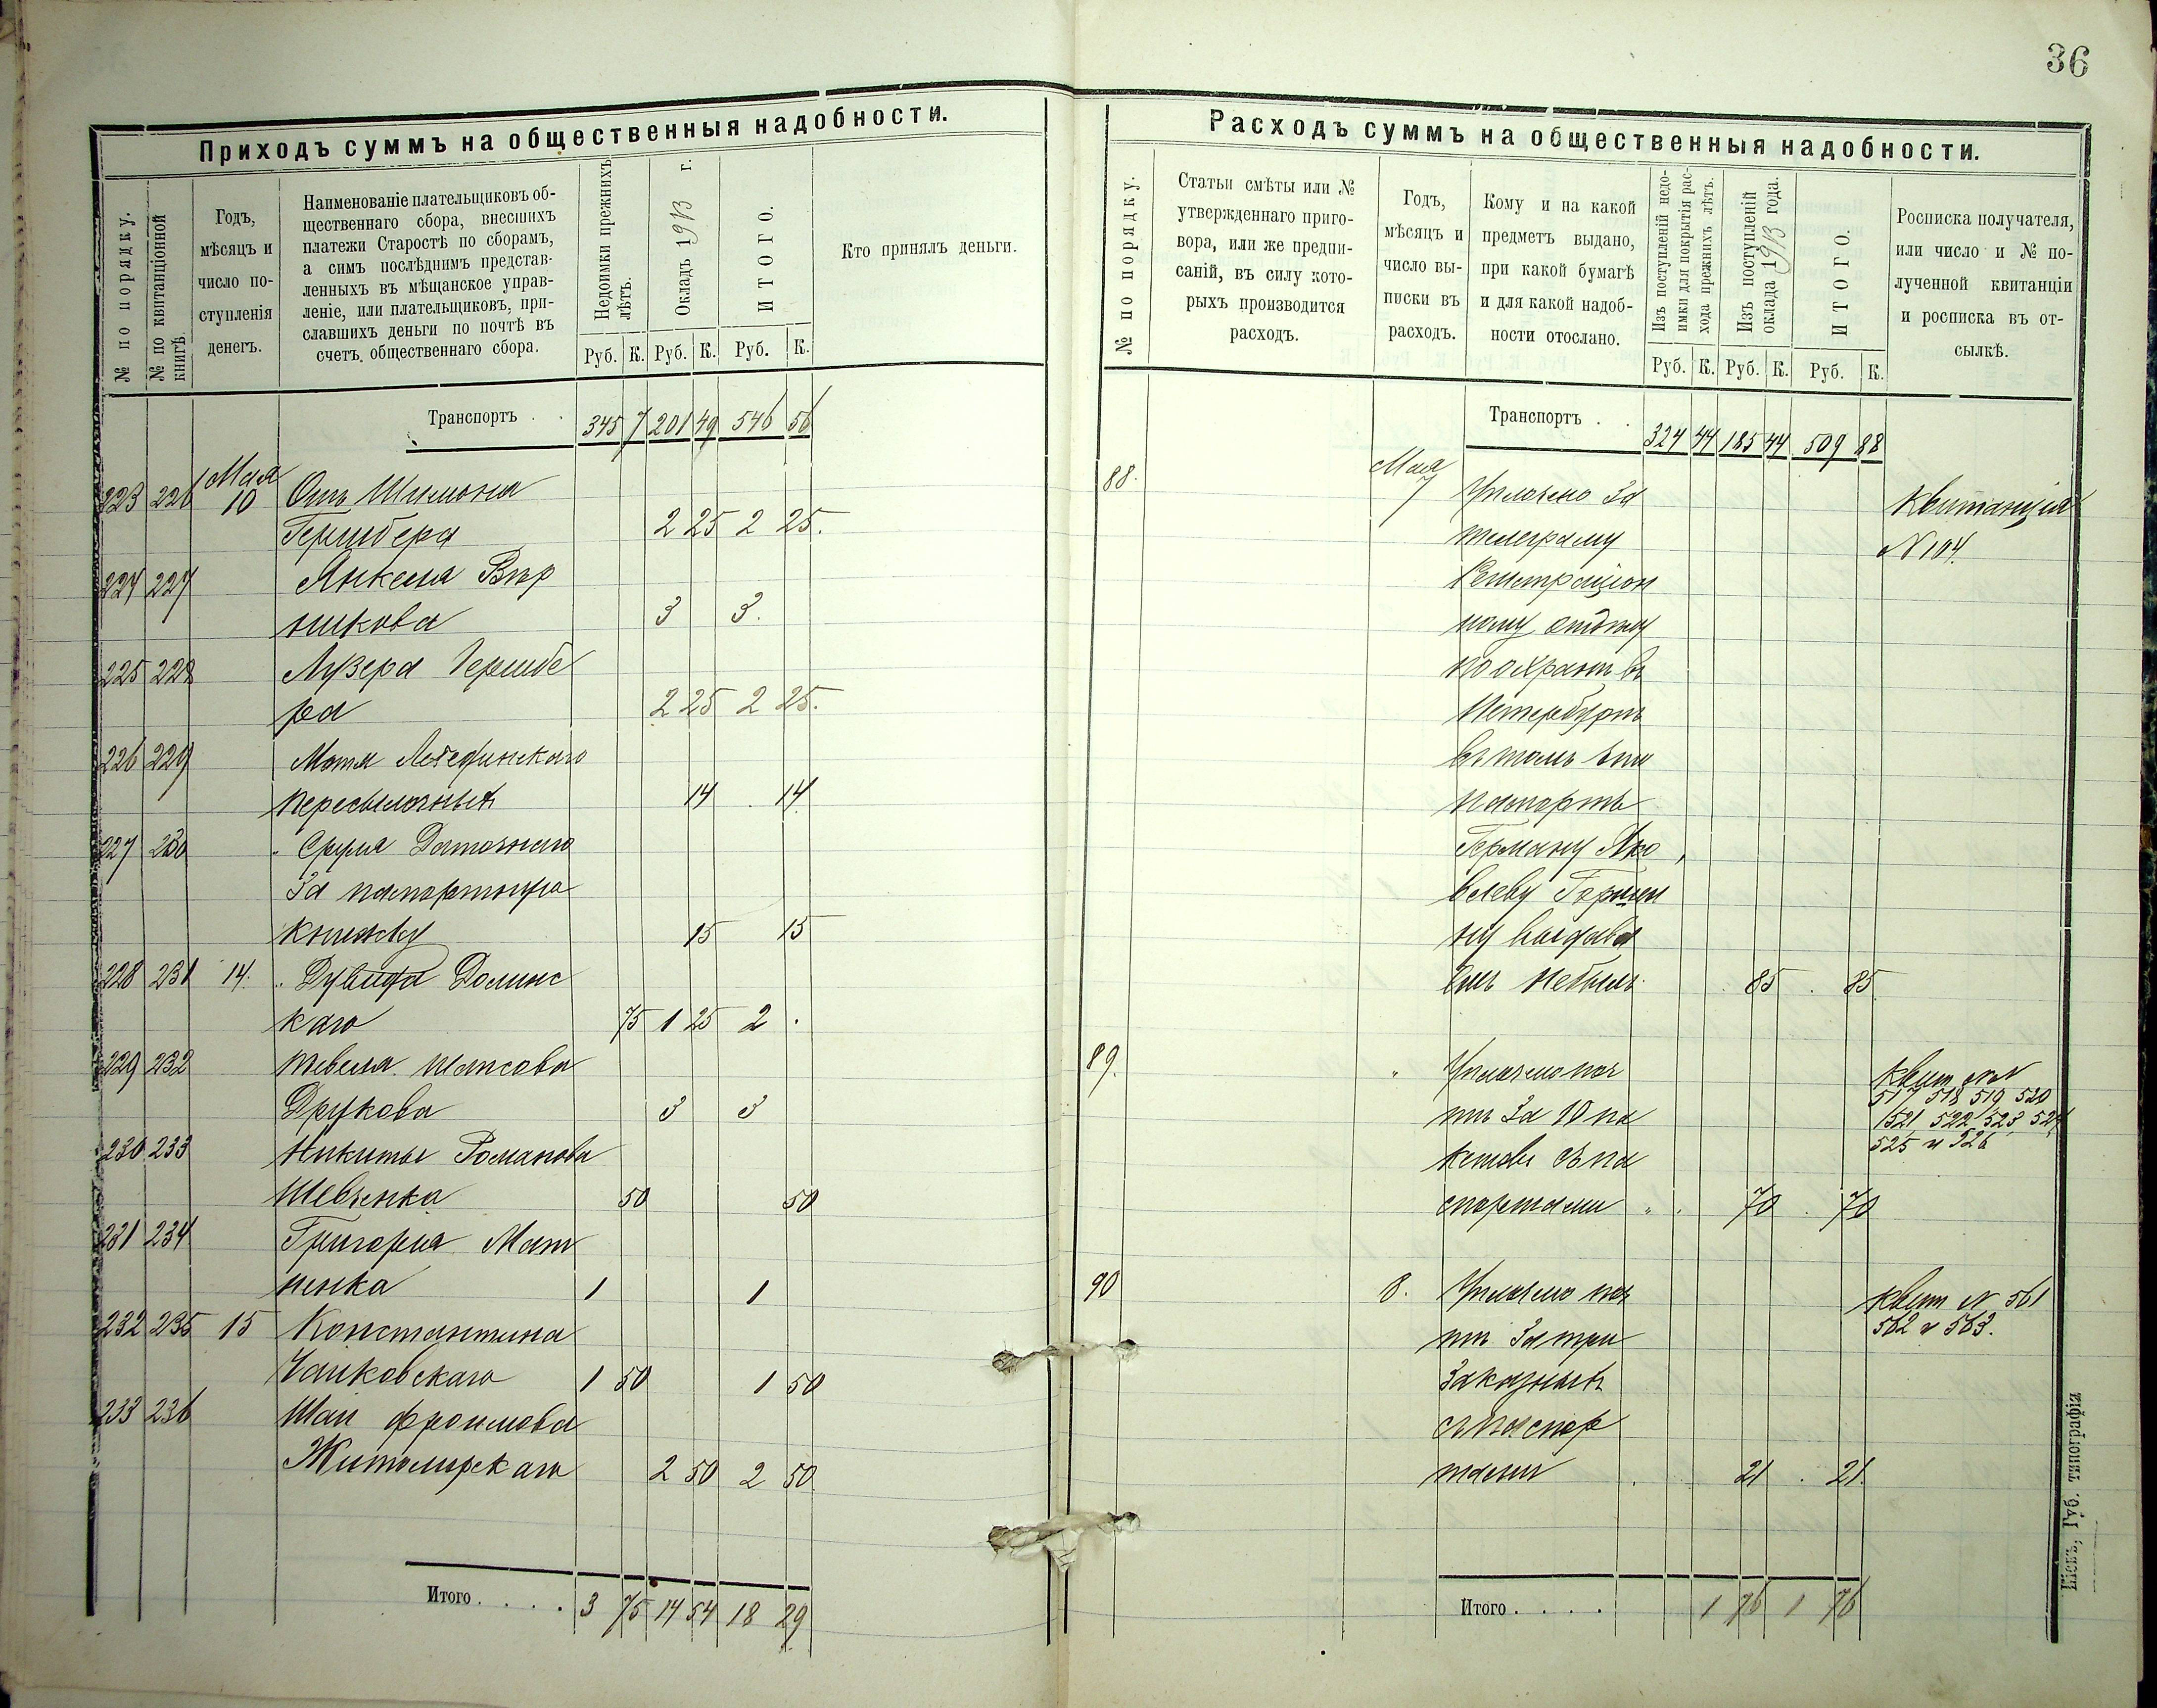 36
Приходъ суммъ на общественныя надобности.
№ по порядку.
№ по квитанціонной книгѣ.
Годъ,
мѣсяцъ и
число по-
ступленія
денегъ.
Наименованіе плательщиковъ об-
щественнаго сбора, внесшихъ
платежи Старостѣ по сборамъ,
а симъ послѣднимъ представ-
ленныхъ въ мѣщанское управ-
леніе, или плательщиковъ, при-
славшихъ деньги по почтѣ въ
счетъ общественнаго сбора.
Недоимки прежнихъ лѣтъ.
Окладъ 1913 г.
ИТОГО.
Кто принялъ деньги.
Руб. К. Руб. К. Руб. К.
Транспортъ . . 345 7 201 49 546 56
223 226 Мая 10 Отъ Шимона
Гершбера 2 25 2 25.
224 227 Янкеля Вир
никова 3 3.
225 228 Лузера Гершбе
ра 2 25 2 25.
226 229 Мотя
пересылочныхъ 14 . 14.
227 230 Сруля
За паспортную
книжку 15 15
228 231 14. Дувида Долинс
каго 75 1 25 2 .
229 232 Тевеля Шапсова
Друкова 3 3
230 233 Никиты Романова
Шевченка 50 50
231 234 Григорія Мат
ненка 1 1
232 235 15 Константина
Чайковскаго 1 50 1 50
233 236 Шаи Фроимова
Житомирскаго 2 50 2 50
Итого . . . . 3 75 14 54 18 29
Расходъ суммъ на общественныя надобности.
№ по порядку.
Статьи смѣты или №
утвержденнаго приго-
вора, или же предпи-
саній, въ силу кото-
рыхъ производится
расходъ.
Годъ,
мѣсяцъ и
число вы-
писки въ
расходъ.
Кому и на какой
предметъ выдано,
при какой бумагѣ
и для какой надоб-
ности отослано.
Изъ поступленій недо-
имки для покрытія рас-
хода прежнихъ лѣтъ.
Изъ поступленій
оклада 1913 года.
ИТОГО.
Росписка получателя,
или число и № по-
лученной квитанціи
и росписка въ от-
сылкѣ.
Руб. К. Руб. К. Руб. К.
Транспортъ . . 324 44 185 44 509 88
88. Мая 7 Уплочено За Квитанція
телеграму N 104.
Регистраціон
ному отдѣлу
по охранѣ въ
Петербургѣ
въ томъ что
паспортъ
Герману Яко
влеву Горшен
ну выдава
емъ небылъ. 85 . 85
89. " Уплочено поч Квит №№
тѣ За 10 па 517 518 519 520
кетовъ съ па 521 522 523 524
спортами 70 . 70 525 и 526
90 8. Уплочено поч Квит N 561
тѣ За три 562 и 563.
Заказныхъ
съ паспор
тами 21 . 21.
Итого . . . . 1 76 1 76
Кіевъ, Губ. типографія